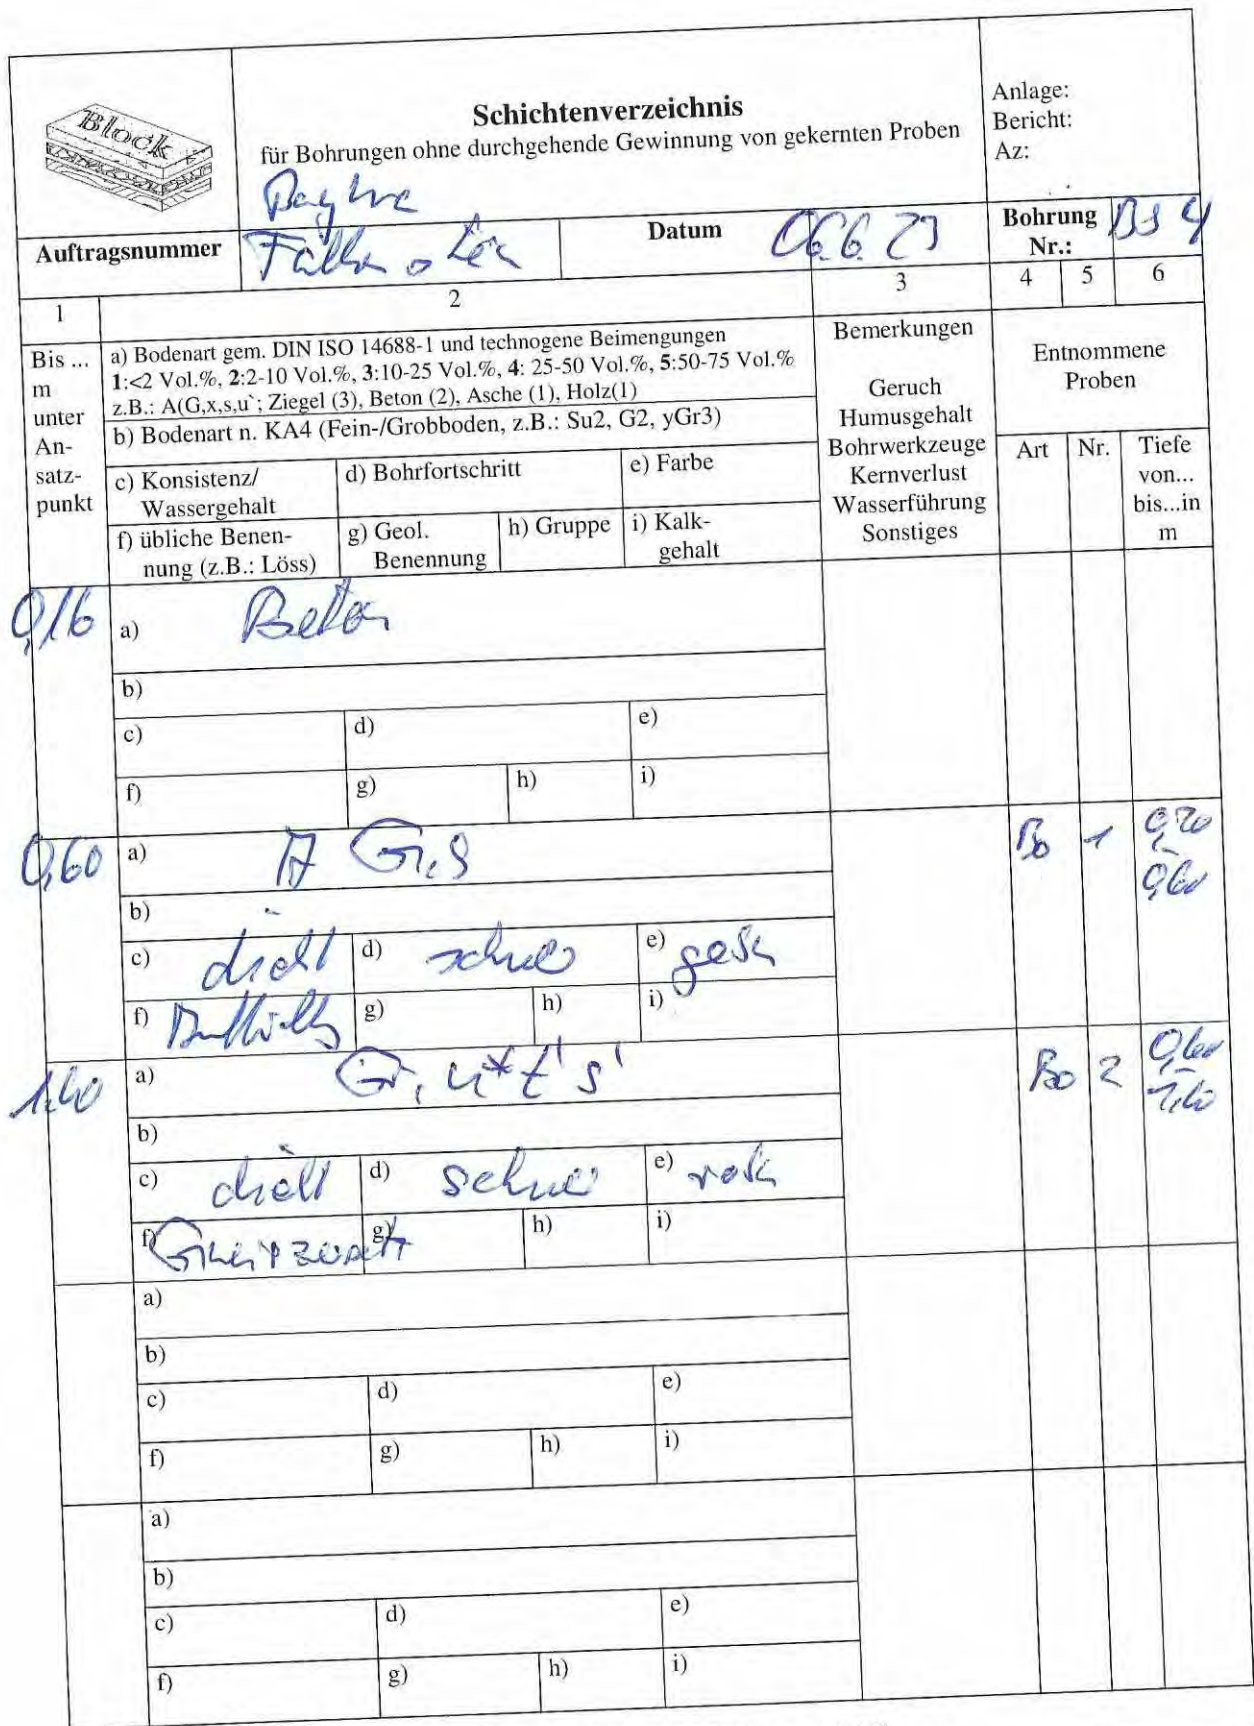 Block
Schichtenverzeichnis
für Bohrungen ohne durchgehende Gewinnung von gekernten Proben
Anlage:
Bericht:
Az:
Auftragsnummer
Datum 06.6.23
Bohrung Nr.: BS 4
1 2 3 4 5 6
Bis ... m unter An-satz-punkt
a) Bodenart gem. DIN ISO 14688-1 und technogene Beimengungen
1:<2 Vol.%, 2:2-10 Vol.%, 3:10-25 Vol.%, 4: 25-50 Vol.%, 5:50-75 Vol.%
z.B.: A(G,x,s,u`; Ziegel (3), Beton (2), Asche (1), Holz(1)
b) Bodenart n. KA4 (Fein-/Grobboden, z.B.: Su2, G2, yGr3)
c) Konsistenz/
Wassergehalt
d) Bohrfortschritt
e) Farbe
f) übliche Benen-
nung (z.B.: Löss)
g) Geol.
Benennung
h) Gruppe
i) Kalk-
gehalt
Bemerkungen
Geruch
Humusgehalt
Bohrwerkzeuge
Kernverlust
Wasserführung
Sonstiges
Entnommene
Proben
Art
Nr.
Tiefe
von...
bis...in
m
0,16
a) Beton
b)
c) d) e)
f) g) h) i)
0,60
a) A G,s
Bo 1 0,20
- 0,60
b)
c) dicht d) schwer e)
f) g) h) i)
1,40
a) u* t' s'
Bo 2 0,60
-
b)
c) dicht d) schwer e)
f) g) h) i)
a)
b)
c) d) e)
f) g) h) i)
a)
b)
c) d) e)
f) g) h) i)